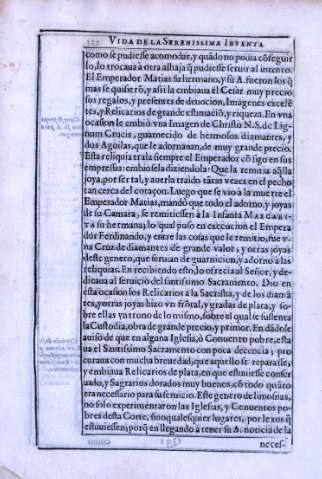 VIDA DE LA SERENISSIMA INFANTA
como se pudiesse acomodar, y quãdo no podia cõseguir
lo, lo trocaua à otra alhaja q̃ pudiesse seruir al intento.
El Emperador Matias su hermano, y su A. fueron los q̃
mas se quisierõ, y assi la embiaua el Cesar muy precio
sos regalos, y presentes de deuocion, Imagenes excelẽ
tes, y Relicarios de grande estimaciõ, y riqueza. En vna
ocasion le embiò vna Imagen de Christo N.S. de Lig
num Crucis, guarnecido de hermosos diamantes, y
dos Aguilas, que le adornauan, de muy grande precio.
Esta reliquia traîa siempre el Emperador cõsigo en sus
empressas: embiòsela diziendola: Que la remitia aq̃lla
joya, por ser tal, y auerla traido tãtas vezes en el pecho
tan cerca del coraçon. Luego que se viò a la muerte el
Emperador Matias, mandò que todo el adorno, y joyas
de su Camara, se remitiessen à la Infanta MARGARI
TA su hermana; lo qual puso en execucion el Empera
dor Ferdinando, y entre las cosas que le remitio, fue v-
na Cruz de diamantes de grande valor, y otras joyas
deste genero, que seruian de guarnicion, y adorno à las
reliquias. En recibiendo esto, lo ofrecia al Señor, y de-
dicaua al seruicio del santissimo Sacramento. Dio en
esta ocasion los Relicarios à la Sacristia, y de los diamã
tes, y otras joyas hizo vn sitial, y gradas de plata, y so-
bre ellas vn trono de lo mismo, sobre el qual se sustenta
la Custodia, obra de grande precio, y primor. En dãdole
auiso de que en alguna Iglesia, ò Conuento pobre, esta
ua el Santissimo Sacramento con poca decencia; pro
curaua con mucha breuedad, que aquello se reparasse,
y embiaua Relicarios de plata, en que estuuiesse conser
uado, y Sagrarios dorados muy buenos, cõ todo quãto
era necessario para su seruicio. Este genero de limosnas,
no solo experimentaron las Iglesias, y Conuentos po-
bres desta Corte, sino qualesquier lugares, por lexos q̃
estuuiessen; porq̃ en llegando à tener su A. noticia de la
neces-